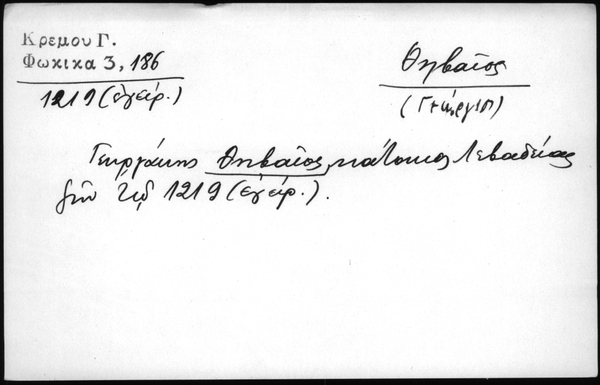 Κρεμου Γ.
Φωκικα 3, 186
1219 (ἐγείρ.)
Θηβαῖος
(Γεώργιος)
Γεωργάκης Θηβαῖος, κάτοικος Λεβαδείας
ζῶν τῷ 1219 (ἐγείρ.).